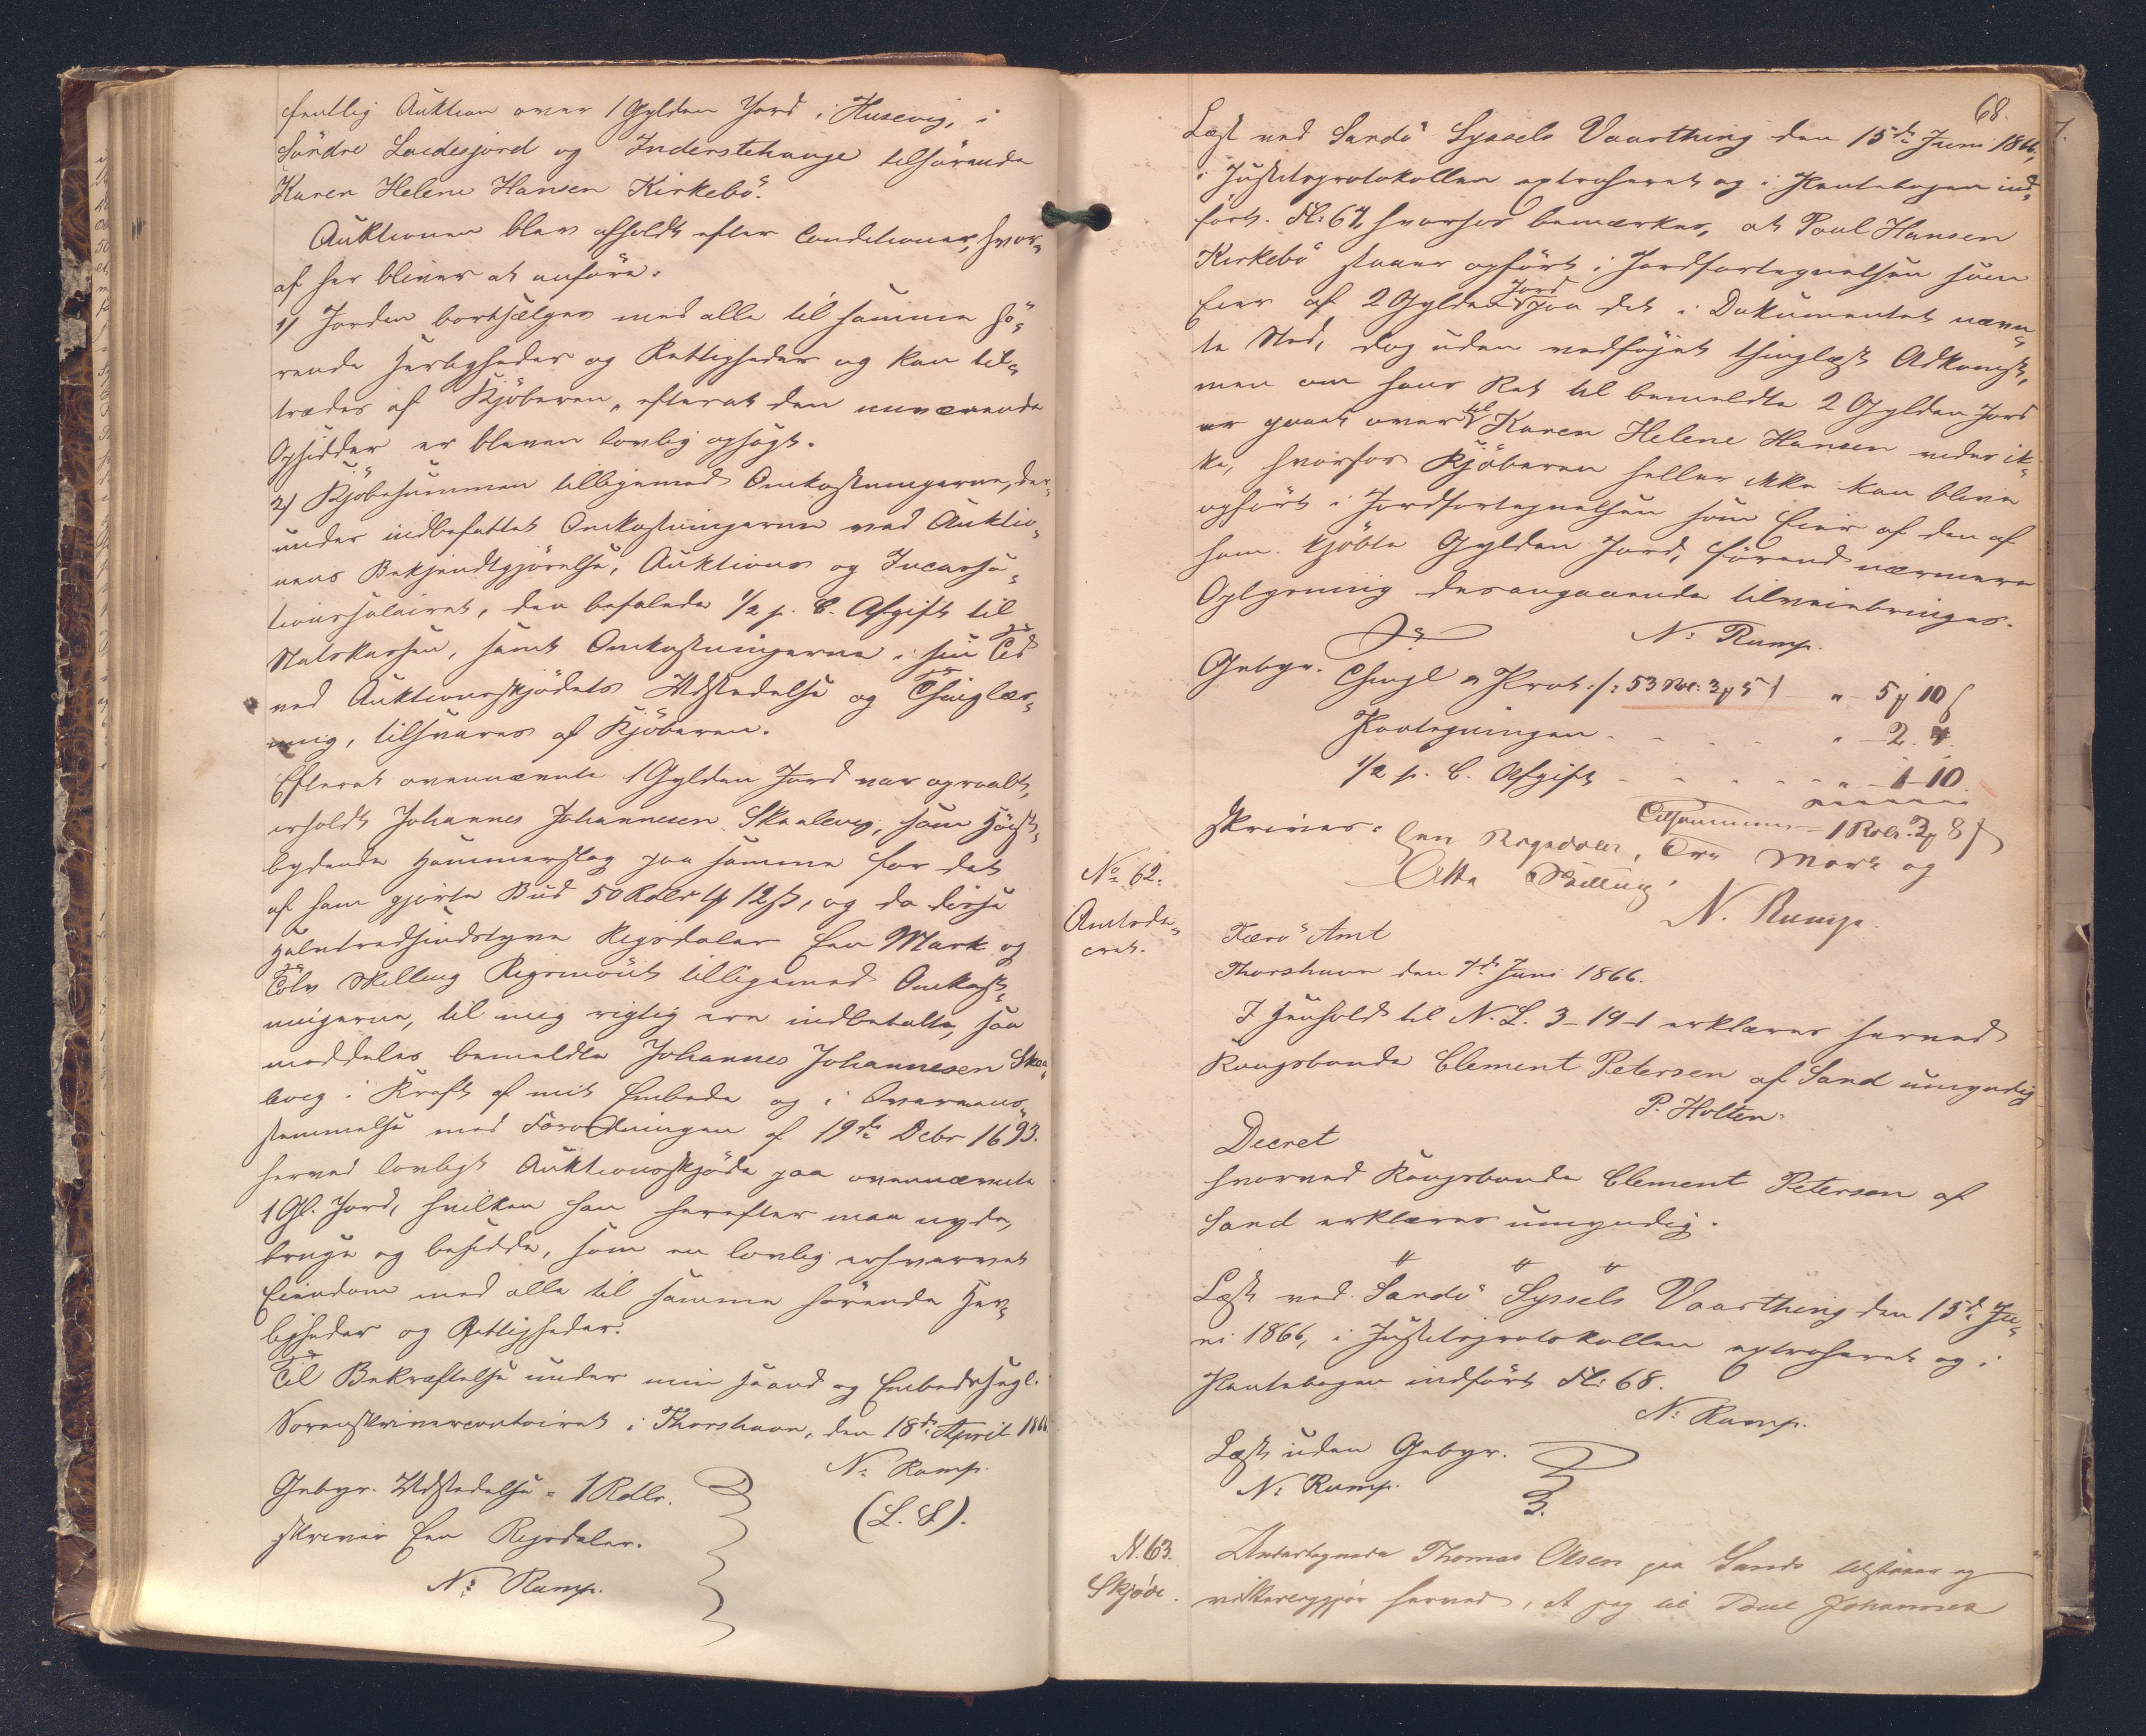 fentlig Auktion over 1 Gylden Jord i Husevig, i
Söndre Laidesjord og Inderstehauge tilhörende
Karen Helene Hansen Kirkebö.
Auktionen blev afholdt efter Conditioner, hvor-
af her bliver at anföre.
1) Jorden bortsælges med alle til samme hö-
rende Herligheder og Rettigheder og kan til-
trædes af Kjöberen, efterat den nuværende
Opsidder er bleven lovlig opsagt.
2) Kjöbesummen tilligemed Omkostningerne, der-
under indbefattet Omkostningerne ved Auktio-
nens Bekjendtgjörelse, Auktions og Incassa-
tionssalairet, den befalede 1/2 p. C. Afgift til
Statskassen, samt Omkostningerne i sin Tid
ved Auktionsskjödets Udstedelse og Thinglæs-
ning, tilsvares af Kjöberen.
Efterat ovennævnte 1 Gylden Jord var opraabt,
erholdt Johannes Johannesen Skaalevig, som Höist-
bydende Hammerslag paa samme for det
af ham gjorte Bud 50 Rdlr 1 12 ß, og da disse
Halvtredsindstyve Rigsdaler Een Mark og
Tolv Skilling Rigsmönt tilligemed Omkost-
ningerne, til mig rigtig ere indbetalte, saa
meddeles bemeldte Johannes Johannesen Skaa-
levig i Kraft af mit Embede og i Overeens-
stemmelse med Forordningen af 19de Debr 1693.
herved lovligt Auktionsskjöde paa ovennævnte
1 Gl. Jord, hvilken han herefter maa nyde,
bruge og besidde, som en lovlig erhvervet
Eiendom med alle til samme hörende Her-
ligheder og Rettigheder.
Til Bekræftelse under min Haand og Embedssegl.
Sorenskrivercontoiret i Thorshavn, den 18de April 1866
N. Rump.
(L. S.).
Gebyr. Udstedelse = 1 Rdlr.
skriver Een Rigsdaler.
N. Rump.
68.
Læst ved Sandö Syssels Vaarthing den 15de Juni 1866,
i Justitsprotokollen extraheret og i Pantebogen ind-
fört. Fl: 67, hvorhos bemærkes, at Poul Hansen
Kirkebö staaer opfört i Jordfortegnelsen som
Eier af 2 Gylden Jord paa det i Dokumentet nævn-
te Sted, dog uden vedföjet thinglæst Adkomst,
men om hans Ret til bemeldte 2 Gylden Jord
er gaaet over til Karen Helene Hansen vides ik-
ke, hvorfor Kjöberen heller ikke kan blive
opfört i Jordfortegnelsen som Eier af den af
ham kjöbte Gylden Jord, förend nærmere
Oplysning desangaaende tilveiebringes.
N. Rump.
Gebyr. Thingl. Prot: /: 53 Nr: 3 5 " 5 10 ß
Paategningen " 2.
1/2 p. C. Afgift " 1 10.
Tilsammen = 1 Rdlr. 2 8 ß
skriver: Een Rigsdaler, To Mark og
Otte Skilling.
N. Rump.
No. 62.
Amtsde-
cret.
Færö Amt
Thorshavn den 7de Juni 1866.
I Henhold til N. L. 3-19-1 erklæres herved
Kongsbonde Clement Petersen af Sand umyndig
P. Holten.
Decret
hvorved Kongsbonde Clement Petersen af
Sand erklæres umyndig.
" " "
Læst ved Sandö Syssels Vaarthing den 15de Ju-
ni 1866, i Justitsprotokollen extraheret og i
Pantebogen indfört Fl: 68.
N. Rump.
Læst uden Gebyr.
N. Rump.
N. 63.
Skjøde.
Undertegnede Thomas Olsen paa Sandö tilstaaer og
vitterliggjør herved, at jeg til Poul Johannes